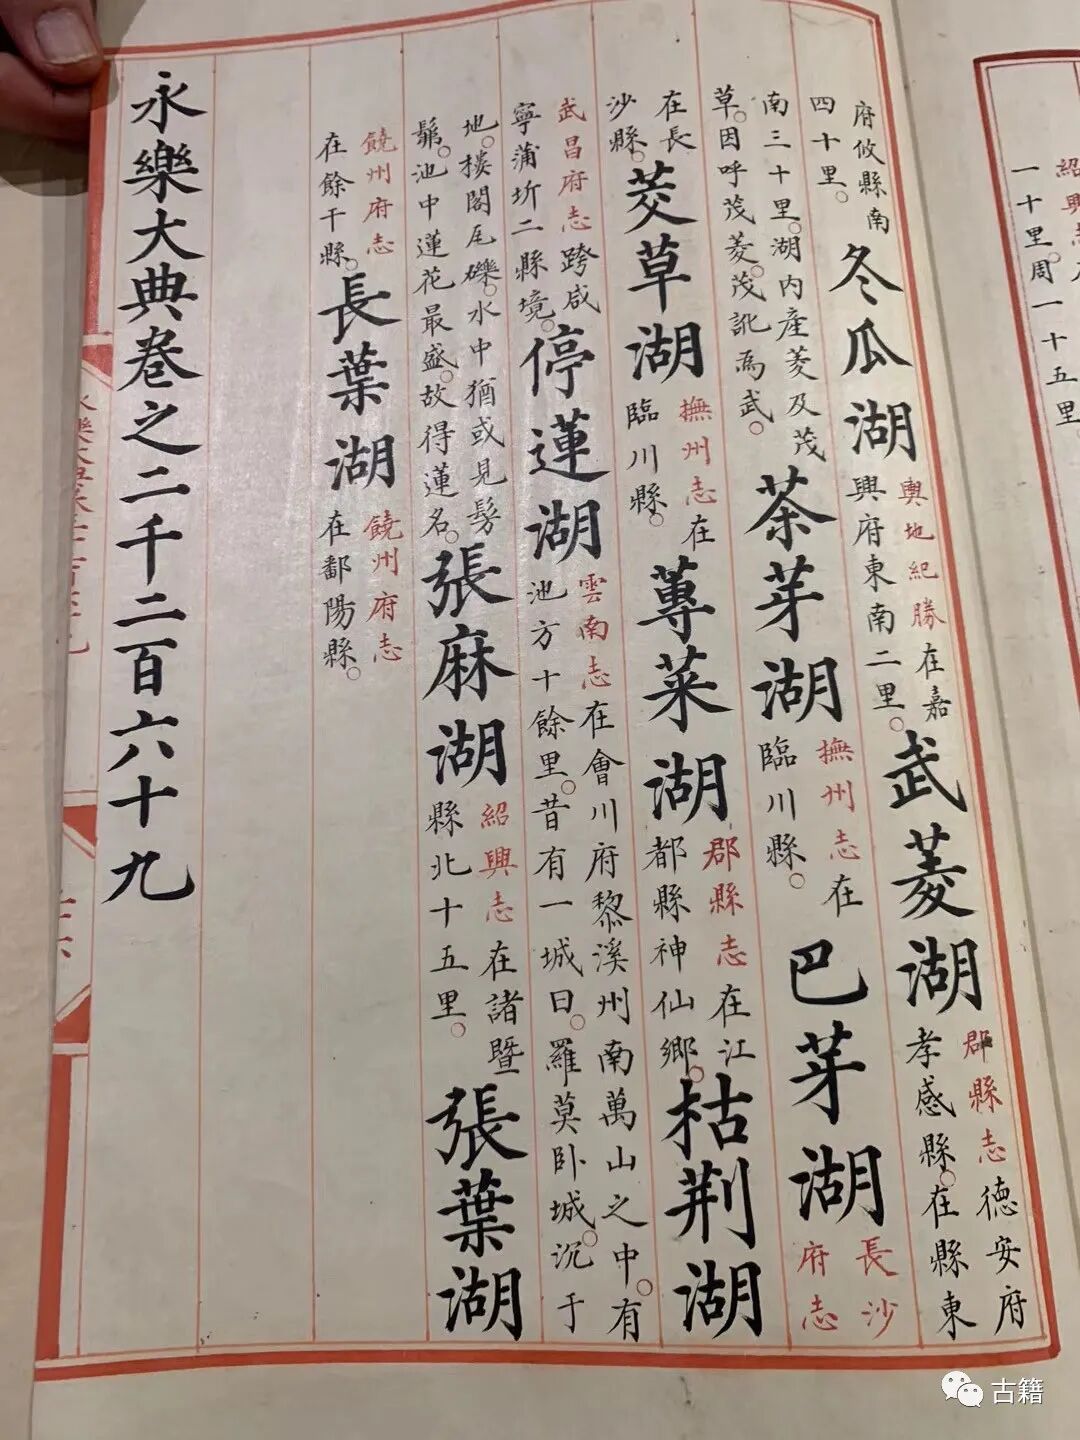 一十里周一十五里
府攸縣南四十里。冬瓜湖輿地紀勝在嘉興府東南二里。武菱湖郡縣志德安府孝感縣。在縣東
南三十里。湖内產菱及茂草。因呼茂菱。茂訛為武。茶芽湖撫州志在臨川縣。巴芽湖長沙府志
在長沙縣。茭草湖撫州志在臨川縣。蓴菜湖郡縣志在江都縣神仙鄉。枯荆湖
武昌府志跨咸寧蒲圻二縣境。停蓮湖雲南志在會川府黎溪州南萬山之中。有池方十餘里。昔有一城曰。羅莫卧城。沉于
地。樓閣瓦礫。水中猶或見髣髴。池中蓮花最盛。故得蓮名。張麻湖紹興志在諸暨縣北十五里。張葉湖
饒州府志在餘干縣。長葉湖饒州府志在鄱陽縣。
永樂大典卷之二千二百六十九
古籍